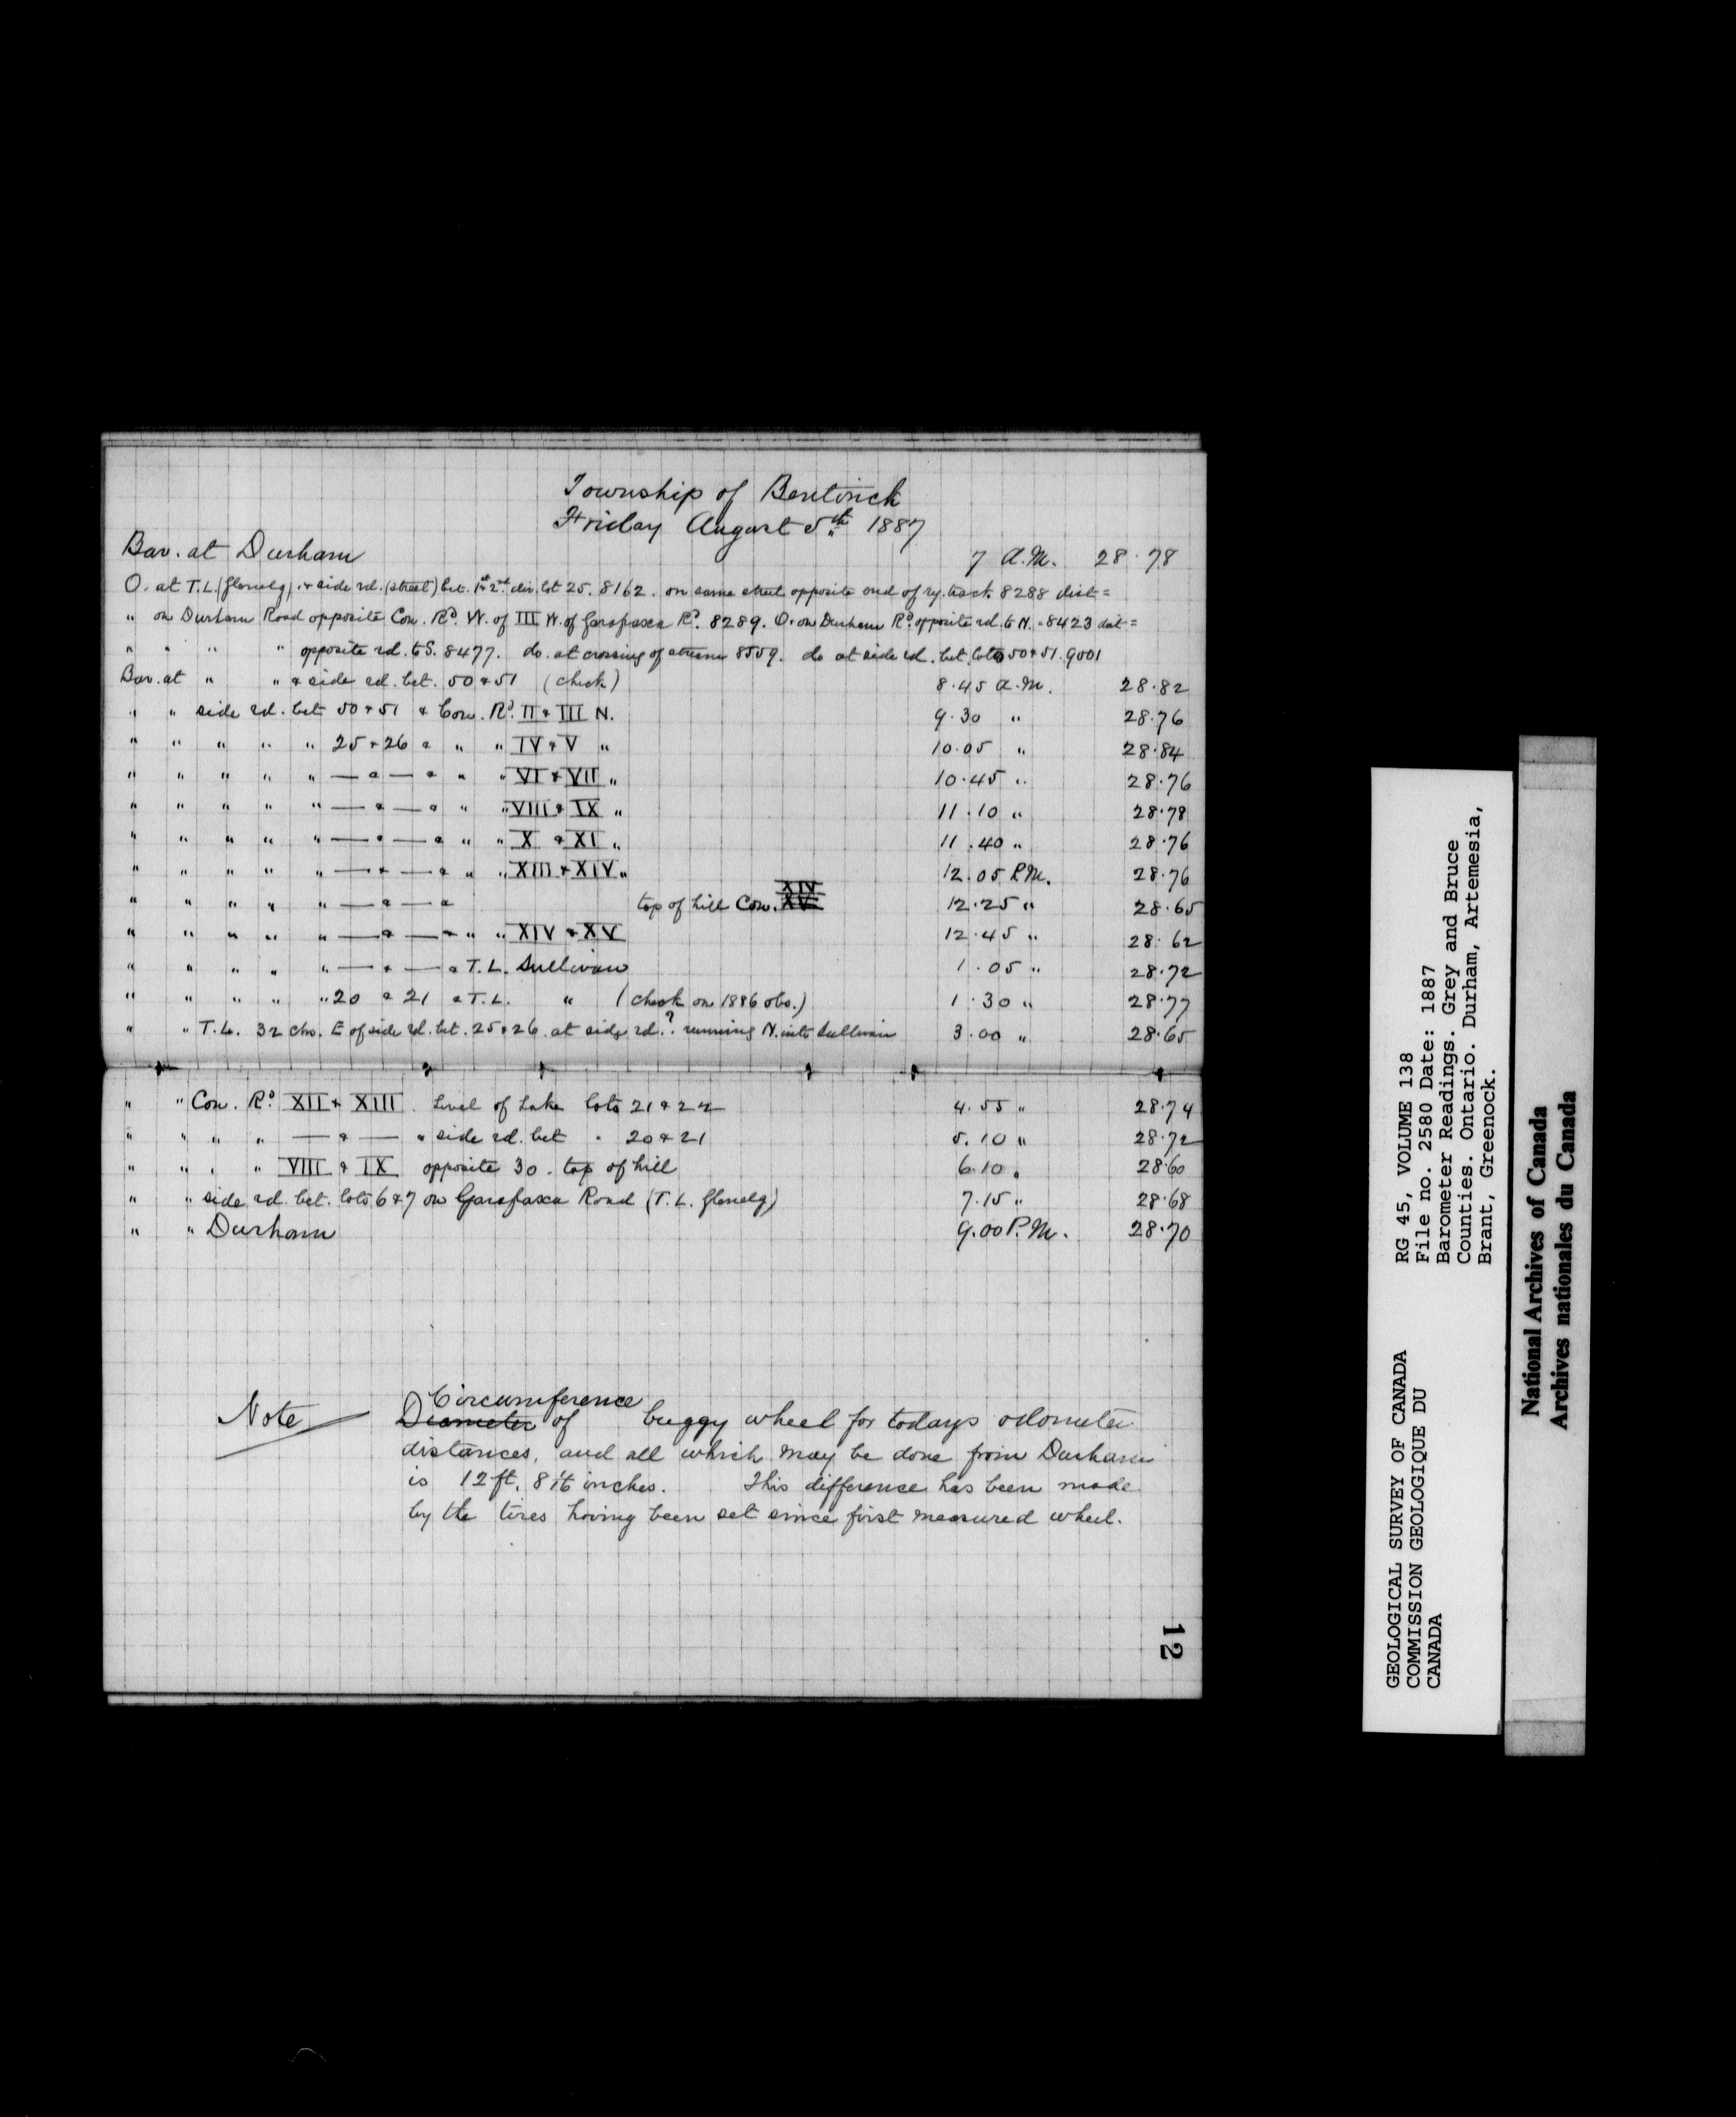 Township of Bentinck
Friday August 5th 1887
Bar. at Durham 7 A.M. 28.78
O. at T.L. (Glenelg) & side rd. (street) bet. 1st & 2nd div. lot 25. 8162. on same street opposite end of ry. track 8288 dist =
" on Durham Road opposite Con. Rd. W. of III W. of Garafaxa Rd. 8289. O. on Durham Rd. opposite rd. to N. = 8423 dist =
" " " " opposite rd. to S. 8477. do. at crossing of stream 8559. do at side rd. bet. lots 50 & 51. 9001
Bar. at " " & side rd. bet. 50 & 51 (check) 8.45 A.M. 28.82
" " side rd. bet 50 & 51 & Con. Rd. II & III N. 9.30 " 28.76
" " " " " 25 & 26 & " " IV & V " 10.05 " 28.84
" " " " " — & — & " " VI & VII " 10.45 " 28.76
" " " " " — & — & " " VIII & IX " 11.10 " 28.78
" " " " " — & — & " " X & XI " 11.40 " 28.76
" " " " " — & — & " " XIII & XIV " 12.05 P.M. 28.76
" " " " " — & — & top of hill Con. XIV XV 12.25 " 28.65
" " " " " — & — & " " XIV & XV 12.45 " 28.62
" " " " " — & — & T.L. Sullivan 1.05 " 28.72
" " " " " 20 & 21 & T.L. " (check on 1886 obs.) 1.30 " 28.77
" " T.L. 32 chs. E of side rd. bet. 25 & 26. at side rd.? running N. into Sullivan 3.00 " 28.65
" " Con. Rd. XII & XIII. Level of Lake lots 21 & 22 4.55 " 28.74
" " " " — & — & side rd. bet " 20 & 21 5.10 " 28.72
" " " " VIII & IX opposite 30. top of hill 6.10 " 28.60
" " side rd. bet. lots 6 & 7 on Garafaxa Road (T.L. Glenelg) 7.15 " 28.68
" " Durham 9.00 P.M. 28.70
Note Circumference
Diameter of buggy wheel for todays odometer
distances, and all which may be done from Durham
is 12 ft. 8 inches. This difference has been made
by the tires having been set since first measured wheel.
12
GEOLOGICAL SURVEY OF CANADA
COMMISSION GEOLOGIQUE DU
CANADA
RG 45, VOLUME 138
File no. 2580 Date: 1887
Barometer Readings. Grey and Bruce
Counties. Ontario. Durham, Artemesia,
Brant, Greenock.
National Archives of Canada
Archives nationales du Canada